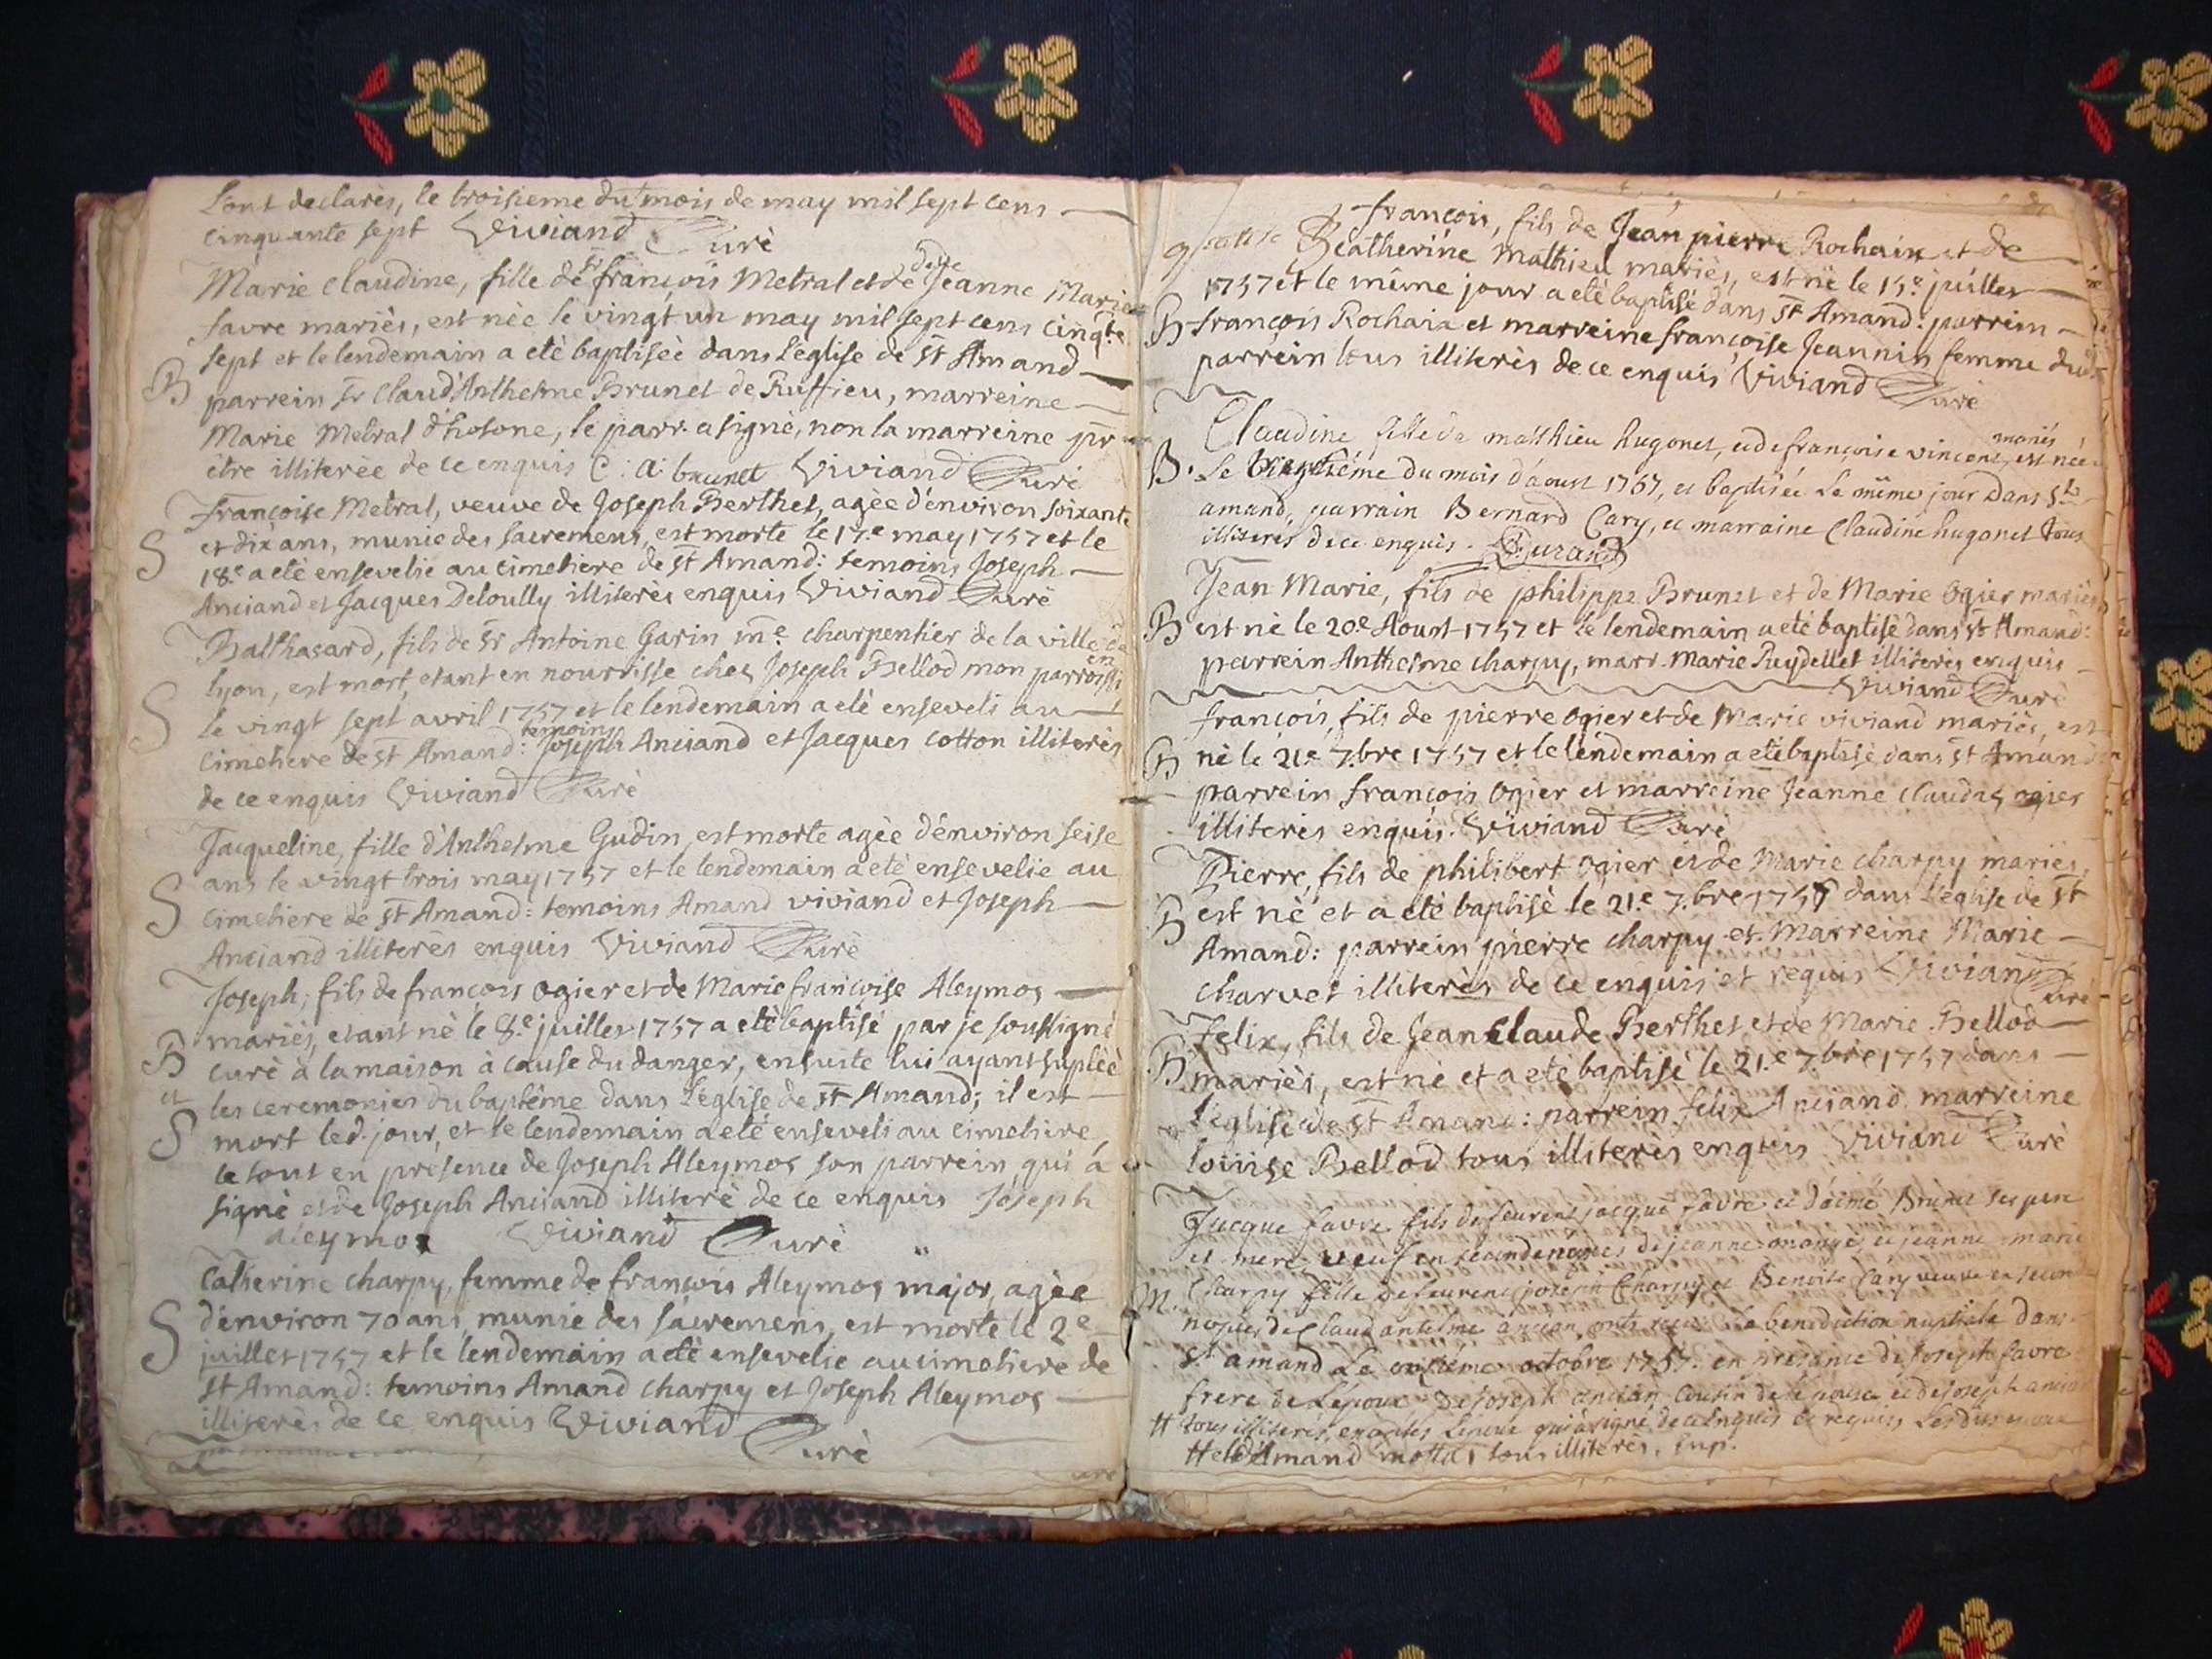 l'ont declarès, le troisieme du mois de may mil sept cens
cinquante sept Viviand Curè
Marie Claudine, fille de Sr françois Metral et de delle Jeanne Marie
favre mariès, est nèe le vingt un may mil sept cens cinqte
B sept et le lendemain a etè baptisèe dans l'eglise de St Amand
parrein Sr Claud'Anthelme Brunet de Ruffieu, marreine
Marie Metral d'hosone, le parr. a signè, non la marreine pr
être illiterèe de ce enquis C : a : brunet Viviand Curè
françoise Metral, veuve de Joseph Berthet, agèe d'environ soixante
S et dix ans, munie des sacremens, est morte le 17.e may 1757 et le
18.e a etè ensevelie au cimetiere de St Amand : temoins Joseph
Anciand et Jacques Deloully illiterès enquis Viviand Curè
Balthasard, fils de Sr Antoine Garin me charpentier de la ville de
lyon, est mort, etant en nourrisse chez Joseph Bellod mon parroissien
S le vingt sept avril 1757 et le lendemain a etè enseveli au
cimetiere de St Amand : temoins Joseph Anciand et Jacques Cotton illiterès
de ce enquis Viviand Curè
Jacqueline, fille d'Anthelme Gudin, est morte agèe d'environ seise
ans le vingt trois may 1757 et le lendemain a etè ensevelie au
S cimetiere de St Amand : temoins Amand viviand et Joseph
Anciand illiterès enquis Viviand Curè
Joseph, fils de françois ogier et de Marie françoise Aleymos
B mariès, etant nè le 8.e juillet 1757 a etè baptisè par je soussignè
curè à la maison à cause du danger, ensuite lui ayant suplèè
et les ceremonies du baptême dans l'eglise de St Amand ; il est
S mort led. jour, et le lendemain a etè enseveli au cimetiere,
le tout en présence de Joseph Aleymos son parrein qui a
signè et de Joseph Anciand illiterè de ce enquis Joseph
aleymos Viviand Curè
Catherine charpy, femme de françois Aleymos major, agèe
S d'environ 70 ans, munie des sacremens, est morte le 2.e
juillet 1757 et le lendemain a etè ensevelie au cimetiere de
St Amand : temoins Amand charpy et Joseph Aleymos
illiterès de ce enquis Viviand
Curè
françois, fils de Jean pierre Rochaix et de
Catherine Mathieu mariès, est nè le 15.e juillet
1757 et le même jour a etè baptisè dans St Amand : parrein
B françois Rochaix et marreine françoise Jeannin femme dud.
parrein tous illiterès de ce enquis Viviand Curè
Claudine fille de matthieu hugonet, et de françoise vincent mariés, est née
B. Le vingtiéme du mois d'aoust 1757, et baptisée le même jour dans St
amand, parrain Bernard Cary, et marraine Claudine hugonet tous
illiterés de ce enquis. Durand
Jean Marie, fils de philippe Brunet et de Marie Ogier mariès
B est nè le 20.e Aoust 1757 et le lendemain a etè baptisè dans St Amand :
parrein Anthelme charpy, marr. Marie Puydellet illiterès enquis
Viviand Curè
françois, fils de pierre ogier et de Marie viviand mariès, est
B nè le 21.e 7.bre 1757 et le lendemain a etè baptisè dans St Amand
parrein françois ogier et marreine Jeanne claudas ogier
illiterès enquis. Viviand Curè
Pierre, fils de philibert ogier et de Marie charpy mariès,
B est nè et a etè baptisè le 21.e 7.bre 1757 dans l'eglise de St
Amand : parrein pierre charpy et Marreine Marie
charvet illiterès de ce enquis et requis Viviand
Curè
Felix, fils de Jean Claude Berthet et de Marie Bellod
B. mariès, est nè et a etè baptisè le 21.e 7.bre 1757 dans
l'eglise de St Amand : parrein felix Anciand, marreine
louise Bellod tous illiterès enquis Viviand Curè
Jacque favre fils de feurent jacque favre et d'aimé Brunet ses pere
et mere veuf en secondenoces de jeanne et jeanne marie
M. Charpy fille de feurent joseph Charpy et Benoite Cary veuve en secon
noces de Claud antelme ancian, onts reçu la benediction nuptiale dans
St amand Le onziéme octobre 1757. en presance de Joseph favre
frere de L'epoux de Joseph ancian Cousin de l'epouse et de joseph ancian
# tous illiterés, exceptés L'epoux qui a signé de ce enquis et requis, Lesdits epoux
# et d'Amand mottas tous illiterés. sup.